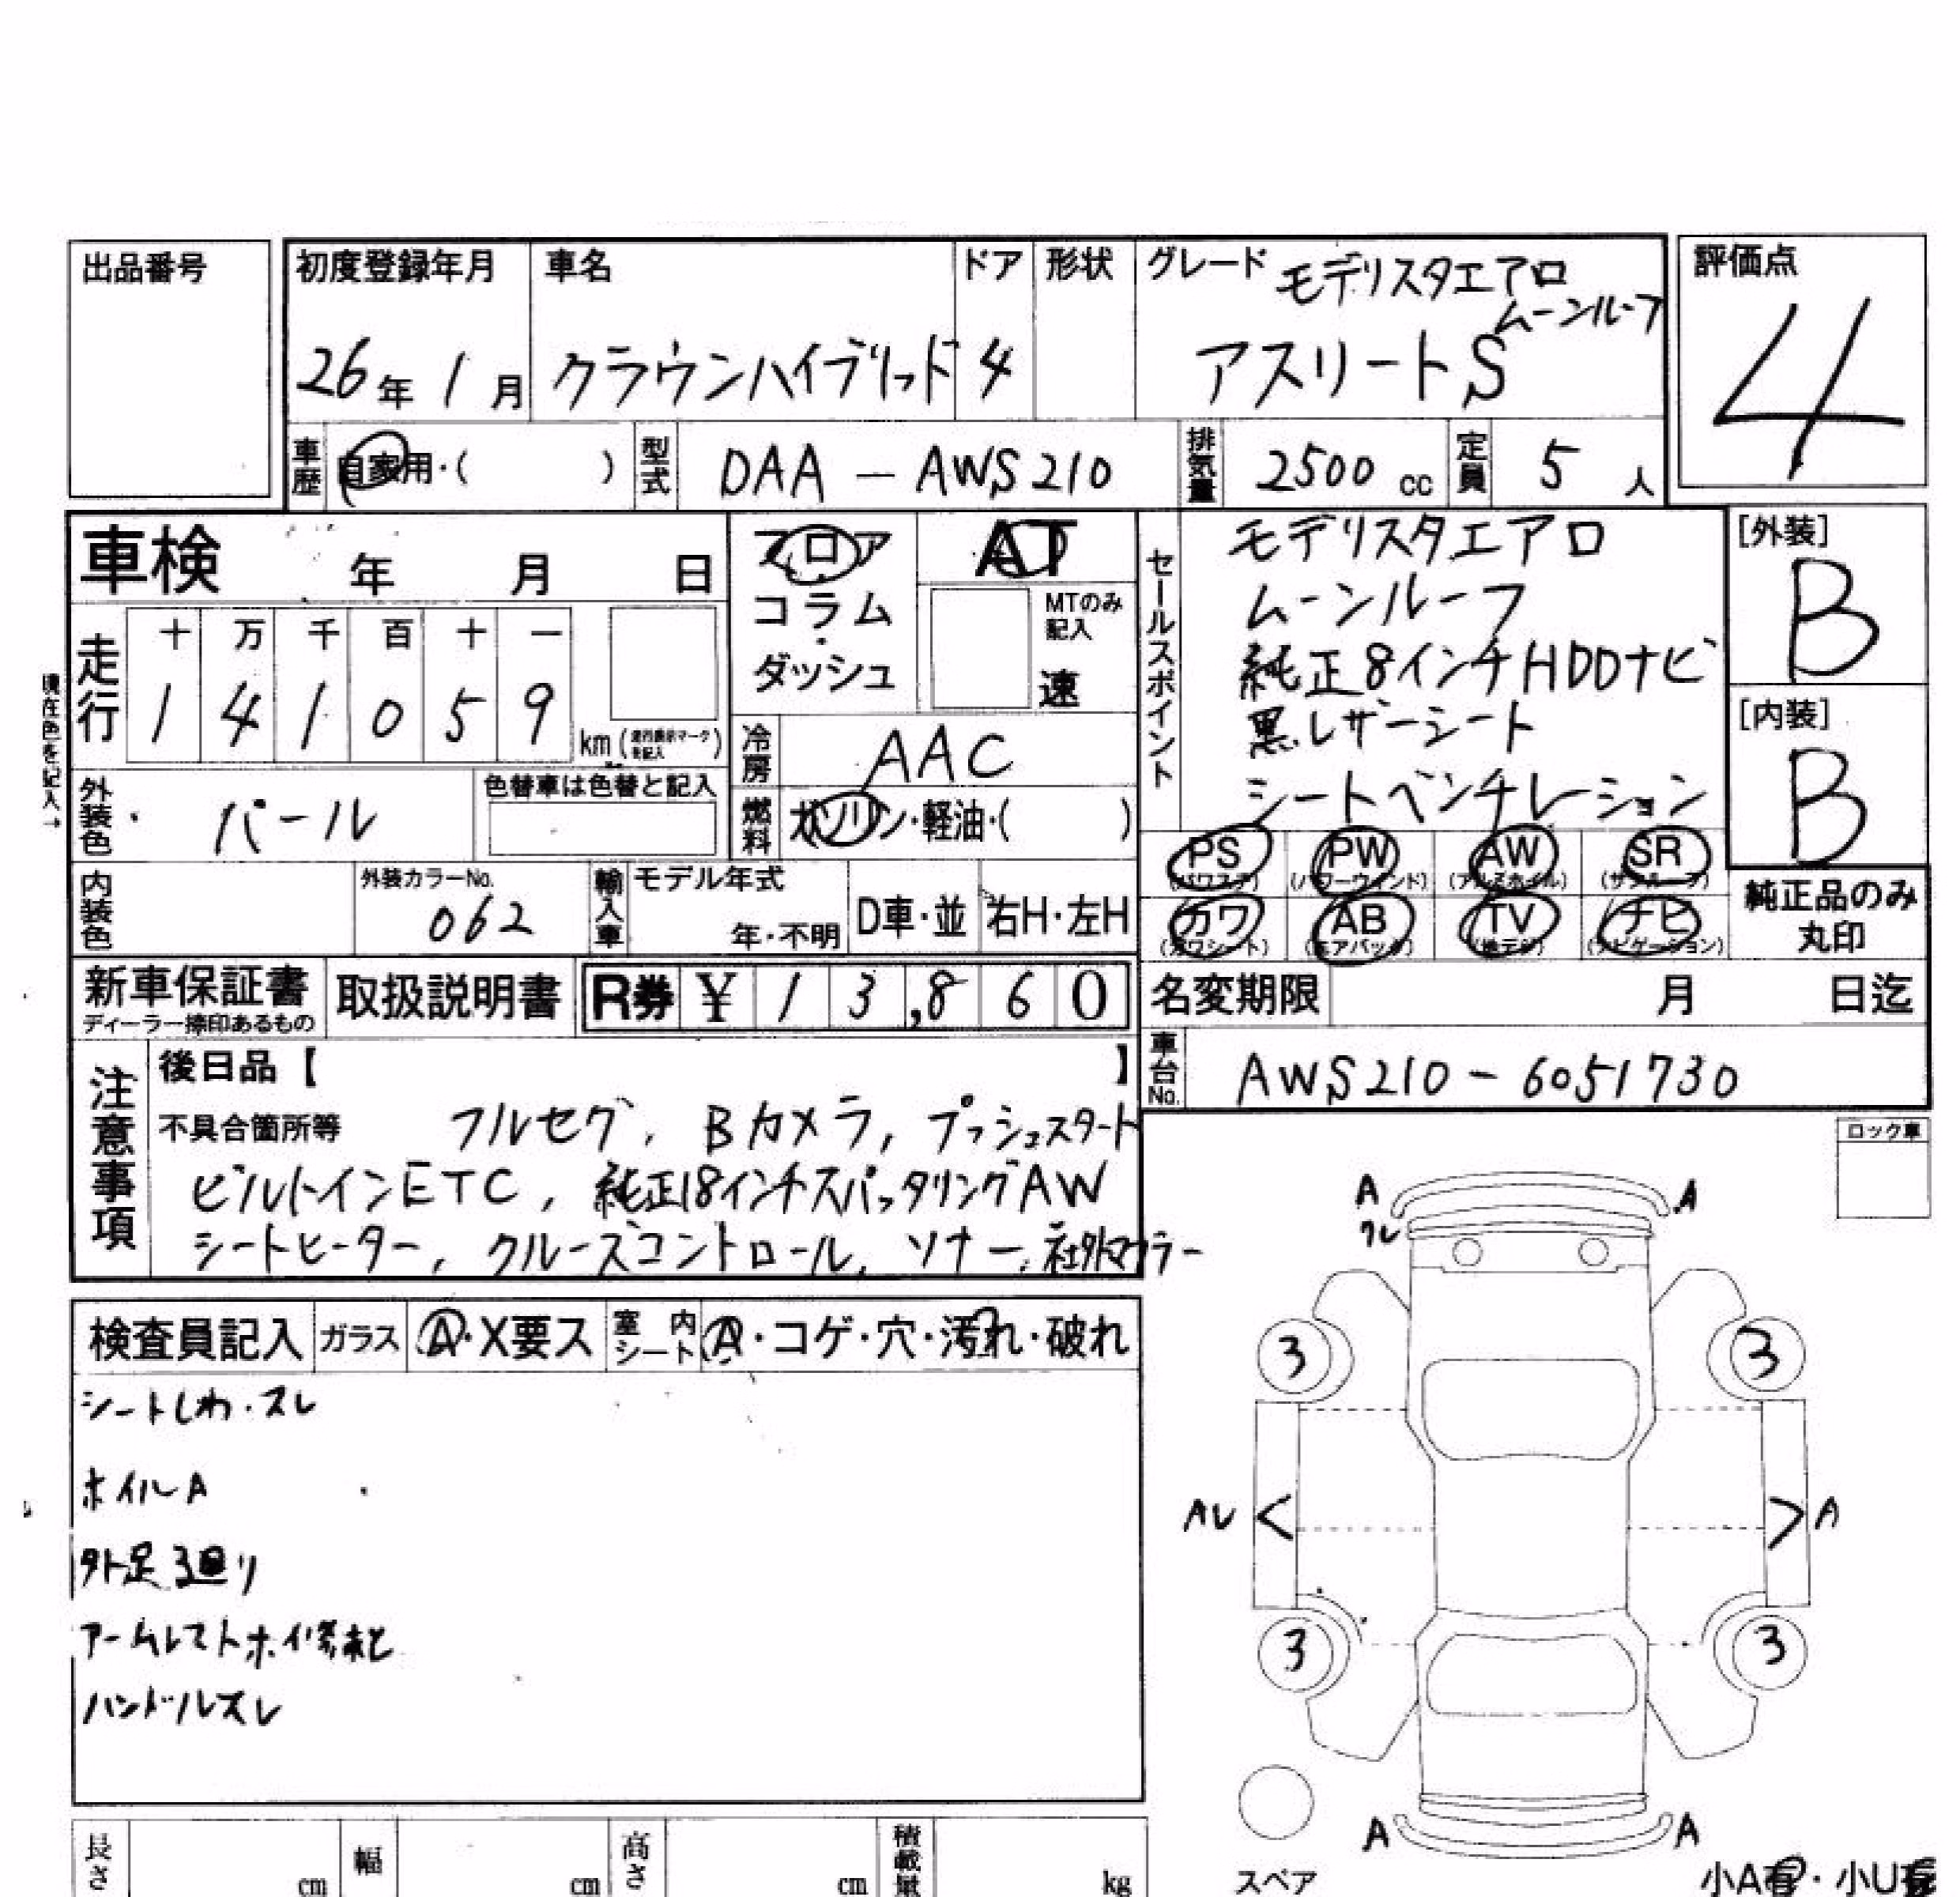 出品番号
初度登録年月
26年 1月
車名
クラウンハイブリッド
ドア
4
形状
グレード モデリスタエアロ
ムーンルーフ
アスリートS
評価点
4
車歴 自家用・( )
型式 DAA-AWS210
排気量 2500 cc
定員 5 人
車検 年 月 日
フロア
コラム
・
ダッシュ
AT
MTのみ
記入
速
走行
十 万 千 百 十 一
1 4 1 0 5 9
km(走行表示マークを記入)
現在色を記入→
外装色 パール
色替車は色替と記入
冷房 AAC
燃料 ガソリン・軽油・( )
内装色
外装カラーNo.
062
輸入車
モデル年式
年・不明
D車・並
右H・左H
セールスポイント
モデリスタエアロ
ムーンルーフ
純正8インチHDDナビ
黒レザーシート
シートベンチレーション
[外装]
B
[内装]
B
PS (パワステ)
PW (パワーウインド)
AW (アルミホイル)
SR (サンルーフ)
カワ (カワシート)
AB (エアバック)
TV (地デジ)
ナビ (ナビゲーション)
純正品のみ
丸印
新車保証書
ディーラー捺印あるもの
取扱説明書
R券 ¥ 13,860
名変期限 月 日迄
車台No. AWS210-6051730
注意事項
後日品【 】
不具合箇所等 フルセグ, Bカメラ, プッシュスタート
ビルトインETC, 純正18インチスパッタリングAW
シートヒーター, クルーズコントロール, ソナー, 社外マフラー
ロック車
検査員記入 ガラス A・X要ス 室内シート A・コゲ・穴・汚れ・破れ
シートしわ・スレ
ホイルA
外足廻り
アームレスト
ハンドルスレ
A A
ワレ
3 3
A A
3 3
A A
スペア
小A有・小U有
長さ cm
幅 cm
高さ cm
積載量 kg